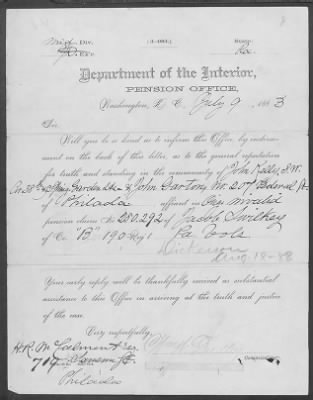 Mid. Div. (3-081.)
Ex'r.
Department of the Interior,
PENSION OFFICE,
Washington, D. C. July 9, 1883
Sir:
Will you be so kind as to inform this Office, by endorse-
ment on the back of this letter, as to the general reputation
for truth and standing in the community of John S.W.
& John No. 207, Federal St
of Philada affiant in Orig Invalid
pension claim No. 280.292 of Jacob
of Co. "B" 190 Reg't Pa. Vols
Your early reply will be thankfully received as substantial
assistance to this Office in arriving at the truth and justice
of the case.
Very respectfully,
H.R. M
719 Sansom St.
Philada